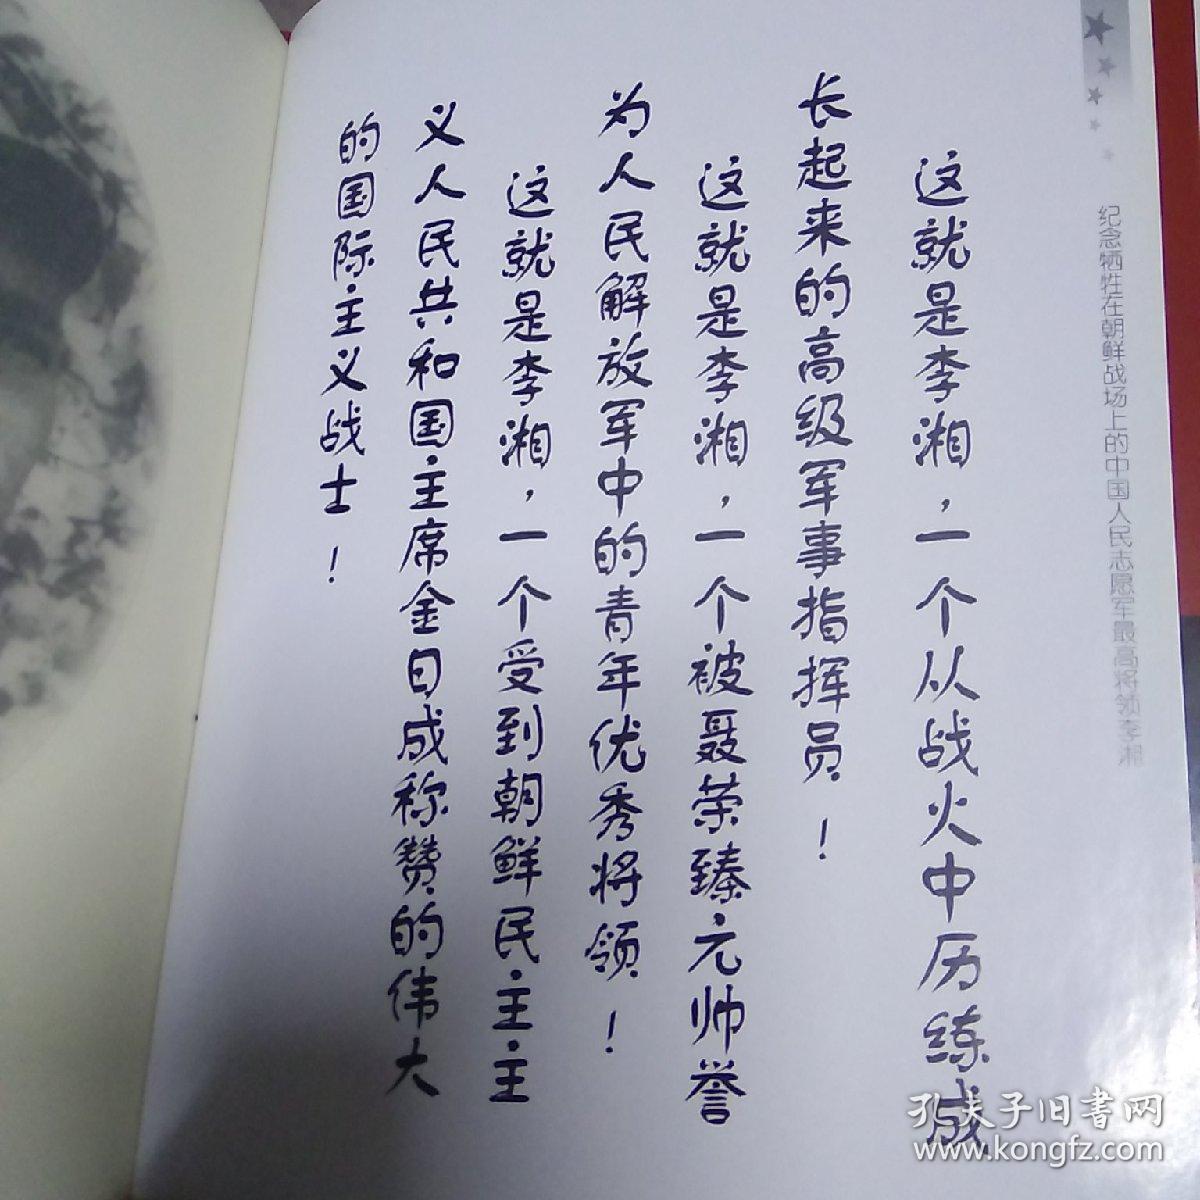 纪念牺牲在朝鲜战场上的中国人民志愿军最高将领李湘
这就是李湘，一个从战火中历练成
长起来的高级军事指挥员！
这就是李湘，一个被聂荣臻元帅誉
为人民解放军中的青年优秀将领！
这就是李湘，一个受到朝鲜民主主
义人民共和国主席金日成称赞的伟大
的国际主义战士！
孔夫子旧书网
www.kongfz.com